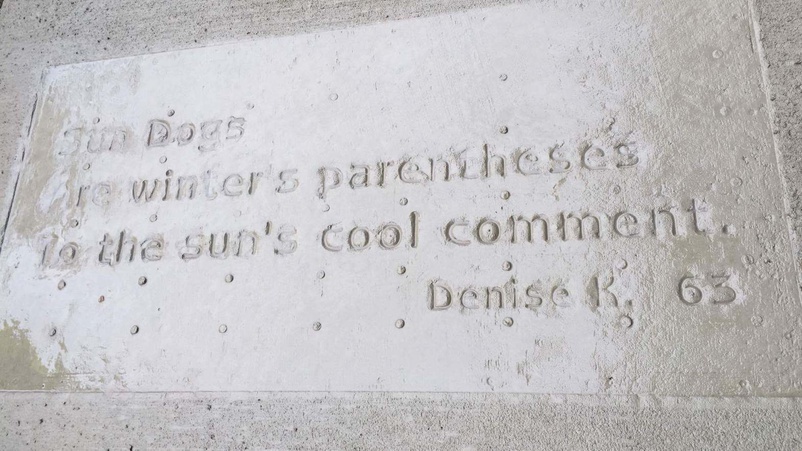 Sun Dogs
re winter's parentheses
to the sun's cool comment.
Denise K. 63